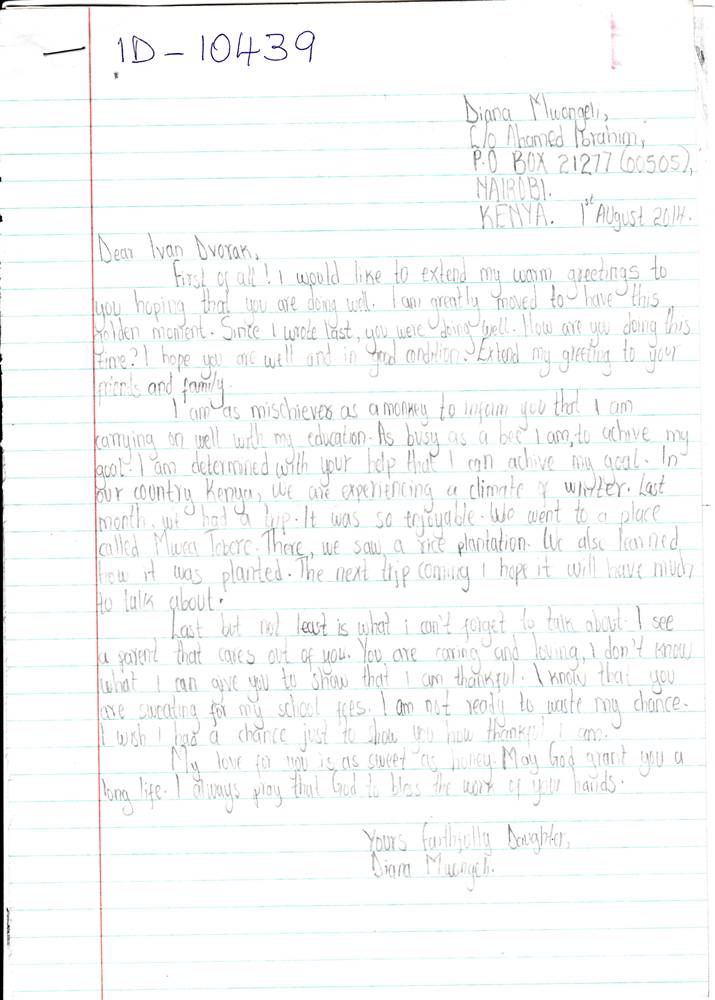 1D - 10439
Diana Mwangeli,
C/o Ahamed Ibrahim,
P.O BOX 21277 (00505),
NAIROBI.
KENYA. 1st August 2014.
Dear Ivan Dvorak,
First of all! I would like to extend my warm greetings to
you hoping that you are doing well. I am greatly moved to have this
golden moment. Since I wrote last, you were doing well. How are you doing this
time? I hope you are well and in good condition. Extend my greeting to your
friends and family.
I am as mischieves as a monkey to inform you that I am
carrying on well with my education. As busy as a bee I am, to achive my
goal. I am determined with your help that I can achive my goal. In
our country Kenya, we are experiencing a climate of winter. Last
month, we had a trip. It was so enjoyable. We went to a place
called Mwea Tebere. There, we saw a rice plantation. We also learned
how it was planted. The next trip coming I hope it will have much
to talk about.
Last but not least is what i can't forget to talk about. I see
a parent that cares out of you. You are caring and loving, I don't know
what I can give you to show that I am thankful. I know that you
are sweating for my school fees. I am not ready to waste my chance.
I wish I had a chance just to show you how thankful i am.
My love for you is as sweet as honey. May God grant you a
long life. I always pray that God to bless the work of your hands.
Yours Faithfully Daughter,
Diana Mwangeli.